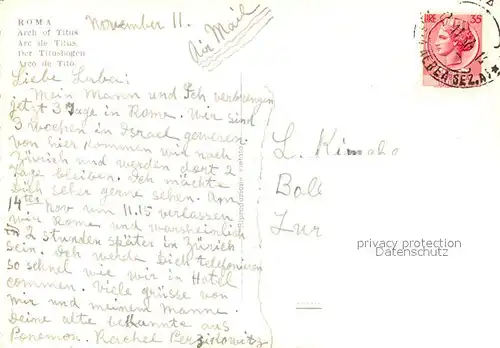 ROMA
Arch of Titus
Arc de Titus
Der Titusbogen
Arco de Tito
November 11.
Air Mail
LIRE 35
SEZ. A
Liebe Luba:
Mein Mann und Ich verbringen
jetzt 3 Tage in Roma. Wir sind
3 Wochen in Israel gewesen.
von hier kommen wir nach
Zürich und werden dort 2
Tage bleiben. Ich möchte
Dich seher gerne sehen. Am
14ter Nov um 11.15 verlassen
wir Rome und warsheinlich
in 2 stunden später in Zürich
sein. Ich werde Dich telefonieren
so schnel wie wir in Hotel
commen. Viele grüsse von
mir und meinem Manne.
Deine alte bekannte aus
Ponemon. Rachel
L.
privacy protection
Datenschutz